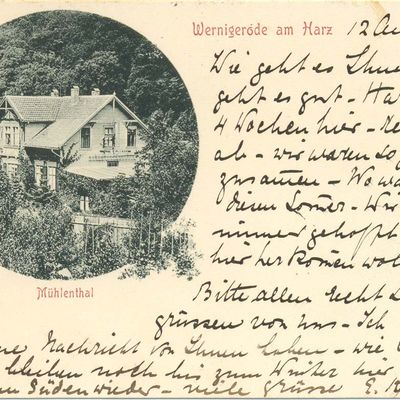 Wernigeröde am Harz 12 Au
Wie geht es Ihne
geht es gut –
4 Wochen hier –
ab – wir waren so
zusammen – Wo wa
diesen Somer – Wir
immer gehofft
hier her komen wol
Mühlenthal
Bitte allen recht
grüssen von uns – Ich
ne Nachricht von Ihnen haben – wie
bleiben noch bis zum Winter hier
Süden wieder – viele grüsse E.